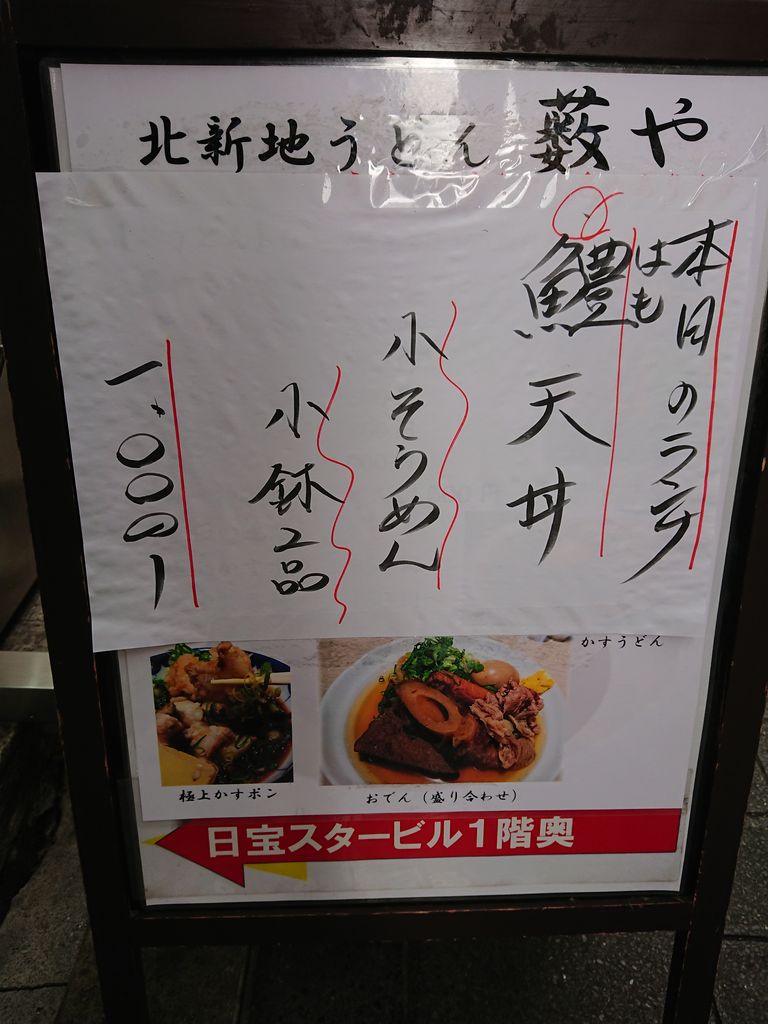 北新地うどん 藪や
本日のランチ
はも
鱧天丼
小そうめん
小鉢2品
一、〇〇〇ー
かすうどん
極上かすポン
おでん（盛り合わせ）
日宝スタービル1階奥